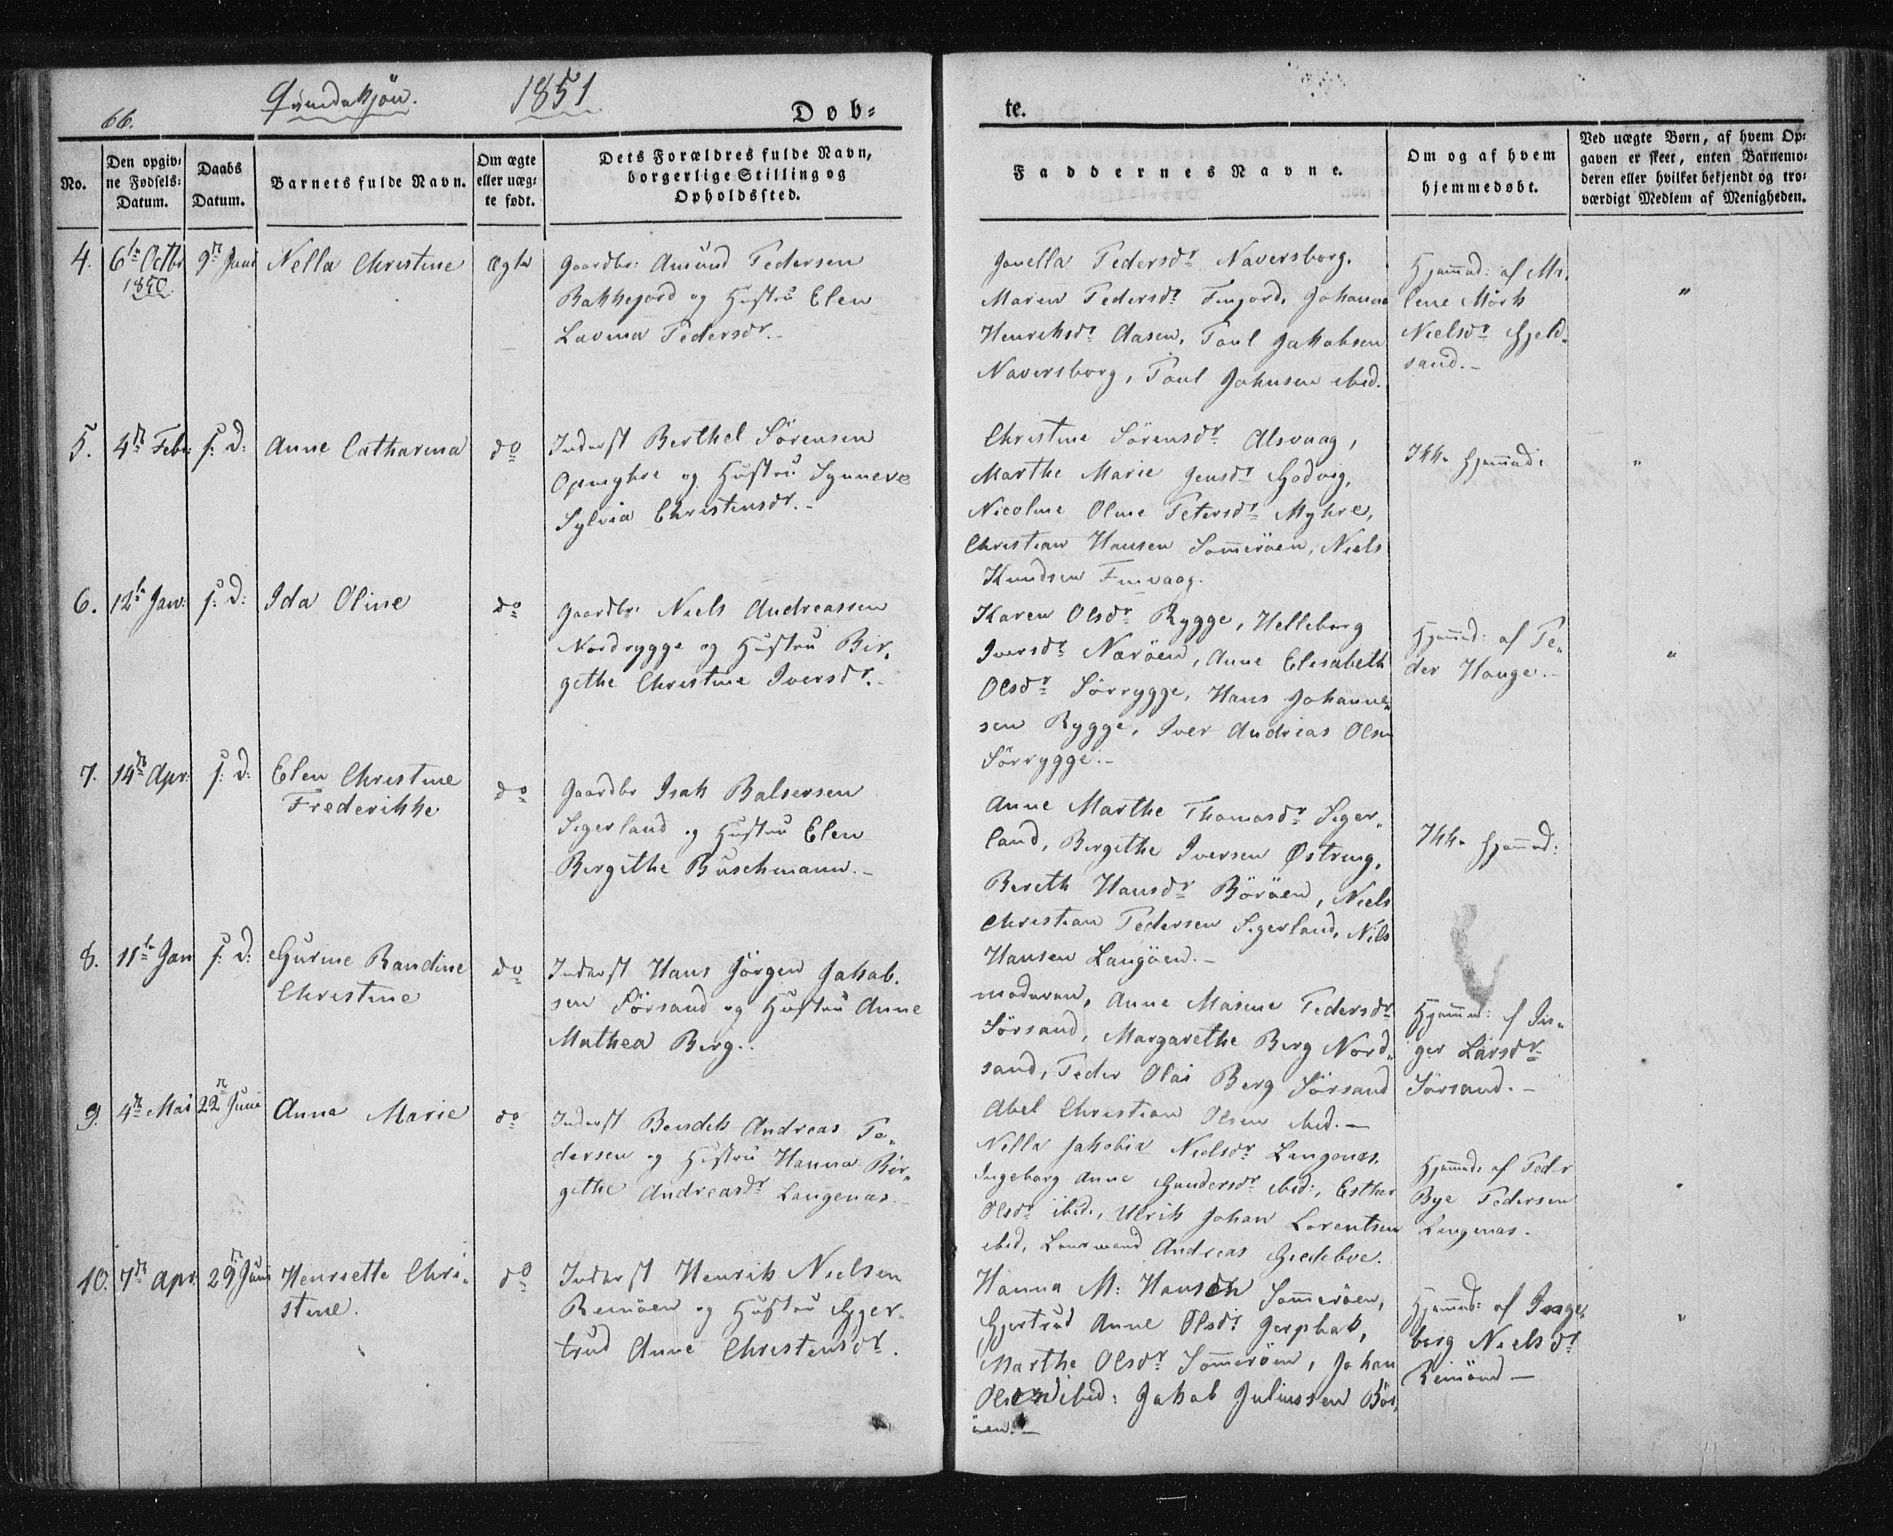 66.
Qvindekjön.
1851
Døb-
te.
No.
Den opgiv-
ne Fødsels-
Datum.
Daabs
Datum.
Barnets fulde Navn.
Om ægte
eller uæg-
te født.
Dets Forældres fulde Navn,
borgerlige Stilling og
Opholdssted.
Faddernes Navne.
Om og af hvem
hjemmedøbt.
Ved uægte Børn, af hvem Op-
gaven er skeet, enten Barnemo-
deren eller hvilket bekjendt og tro-
værdigt Medlem af Menigheden.
4.
6te Octbr
1850.
9n Juni
Nella Christine
ægte
Gaardbr: Amund Pedersen
Bakkejord og Hustru Elen
Lavina Pedersdr.-
Jonella Pedersdr Naversborg.
Maren Pedersdr Finjord, Johanna
Henriksdr Aasen, Poul Jakobsen
Naversborg, Poul Johnsen ibid.
Hjemmed: af Ma-
lene Mörk
Nielsdr Gjeld-
sand.-
"
5.
4n Febr
s: D:
Anne Catharina
do
Inderst Berthel Sörensen
Opmyhre og Hustru Synneve
Sylvia Christensdr.-
Christine Sörensdr Alsvaag,
Marthe Marie Jensdr Godvog,
Nicoline Oline Petersdr Myhre,
Christian Hansen Sommeröen, Niels
Knudsen Finvaag.
Ikke hjemmed:
"
6.
12te Jan:
s: D:
Ida Oline
do
Gaardbr: Niels Andreassen
Nordrygge og Hustru Bir-
gethe Christine Iversdr.-
Karen Olsdr Rygge, Helleborg
Iversdr Naröen, Anne Elisabeth
Olsdr Sörrygge, Hans Johanne-
sen Rygge, Iver Andreas Olsen
Sörrygge.-
Hjemmed: af Pe-
der Hauge.-
"
7.
14n Apr:
s: D:
Elen Christine
Frederikke
do
Gaardbr Isak Balsersen
Sigerland og Hustru Elen
Bergithe Buschmann.-
Anne Marthe Thomasdr Siger-
land, Bergithe Iversen Østeng,
Bereth Hansdr Böröen, Niels
Christian Pedersen Sigerland, Nils
Hansen Langöen.-
Ikke hjemmed:
8.
11te Jan
s: D:
Gurine Randine
Christine
do
Inderst Hans Jörgen Jakob-
sen Sörsand og Hustru Anne
Mathea Berg.-
moderen, Anne Masine Pedersdr
Sörsand, Margarethe Berg Nord-
sand, Peder Olai Berg Sörsand
Abel Christian Olsen ibid.-
Hjemmed: af In-
ger Larsdr
Sörsand.-
9.
4n Mai
22n Juni
Anna Marie
do
Inderst Bendik Andreas Pe-
dersen og Hustru Hanna Bir-
githe Andreasdr Langenæs.-
Nella Jakobia Nielsdr Langenæs,
Ingeborg Anne Gundersdr ibid:, Esther
Olsdr ibid., Ulrik Johan Lorentsen
ibid, Andreas Giedeboe.
Hjemmed: af Peder
Bye Pedersen
Langenæs.
"
10.
7de Apr.
29n Juni
Henriette Chri-
stine.
do
Inderst Henrik Nielsen
Reinöen og Hustru Gjer-
trud Anne Christensdr.
Hanna M: Hansen Sommeröen,
Gjertrud Anne Olsdr
Marthe Olsdr Sommeröen, Johan
Olsen ibid: Jakob Juliussen Bör-
öen.-
Hjemmed: af Inge-
borg Nielsdr
Reinöen-
"